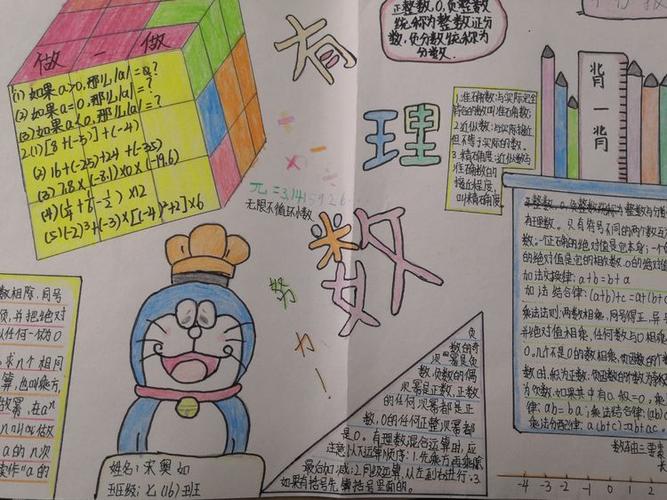 做一做
(1) 如果a>0,那么|a|=a?
(2) 如果a=0,那么|a|=?
(3) 如果a<0,那么|a|=?
2.(1) [8+(-5)]+(-4)
(2) 16+(-25)+24+(-35)
(3) 7.8×(-8.1)×0×(-19.6)
×12
(5) (-2)³+(-3)×[(-4)²+2]×6
有理数
正整数,0,负整数
统称为整数,正分
数,负分数统称为
分数.
1.准确数:与实际完全
符合的数叫准确数;
2.近似数:与实际接近
但不等于实际的数.
3.精确度:近似数与
准确数的
接近程度,
叫精确度
背一背
π=3.1415926
无限不循环小数
努力!
数相除,同号
负,并把绝对
以任何一个为0
求n个相同
算,也叫乘方,
做幂,在aⁿ
n叫做
a的n次
读作"a的
姓名:宋奥
班级:七(16)班
负
数的奇
次幂是负
数,负数的偶
次幂是正数,正数
的任何次幂都是正
数,0的任何正整次幂都
是0.有理数混合运算中,应
注意以下运算顺序:1.先乘方,再乘除,
最后加减;2.同级运算,从左到右进行;3.
如果有括号,先算括号里面的.
有理数.只有符号不同的两个数互为
数.一个正数的绝对值是它本身;一个
的绝对值是它的相反数,0的绝对值
加法交换律:a+b=b+a
加法结合律:(a+b)+c=a+(b+
乘法法则:两数相乘,同号得正,异号
并把绝对值相乘,任何数与0相乘
0,几个不是0的数相乘,负因数的个数
为负数,如果其中有
律:ab=ba;乘法结合律:(ab)
乘法分配律:a(b+c)=ab+ac.
数轴三要素
-4 -3 -2 -1 0 1 2